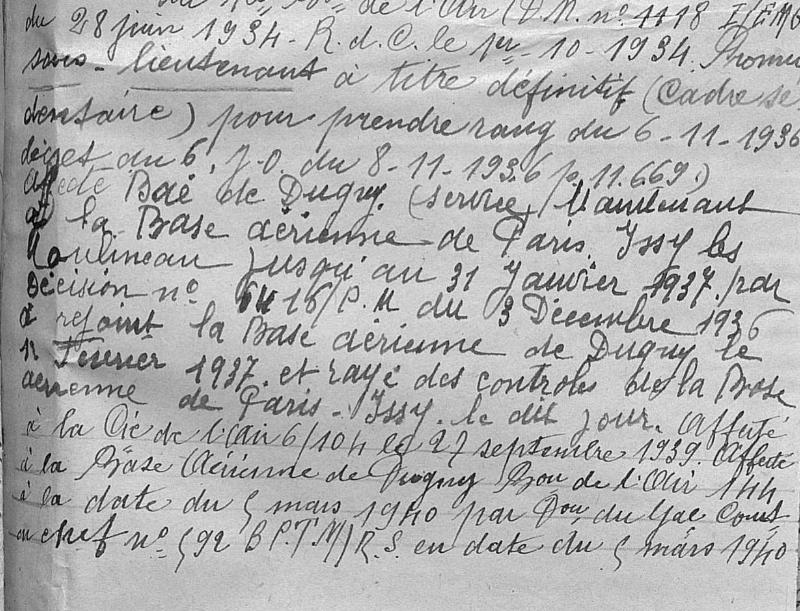 de l'Air (D.M. n° 1118 I/EMG
du 28 juin 1934. R.d.C. le 1er-10-1934. Promu
sous-lieutenant à titre définitif (Cadre sé
dentaire) pour prendre rang du 6-11-1936
décret du 6, J.O. du 8-11-1936 p. 11.669.)
Affecté Base de Dugny. (service) Maintenant
à la Base aérienne de Paris. Issy les
Moulineau jusqu'au 31 Janvier 1937. par
Décision n° 6416/P.M du 3 Décembre 1936
a rejoint la Base aérienne de Dugny le
1r Février 1937. et rayé des controles de la Base
aérienne de Paris-Issy. le dit jour. Affecté
à la Cie de l'Air 6/104 le 27 septembre 1939. Affecté
à la Base Aérienne de Dugny Bon de l'Air 144
à la date du 5 mars 1940 par Don du Gal Comt
en chef n° 592 B P.T.M/R.S. en date du 5 mars 1940